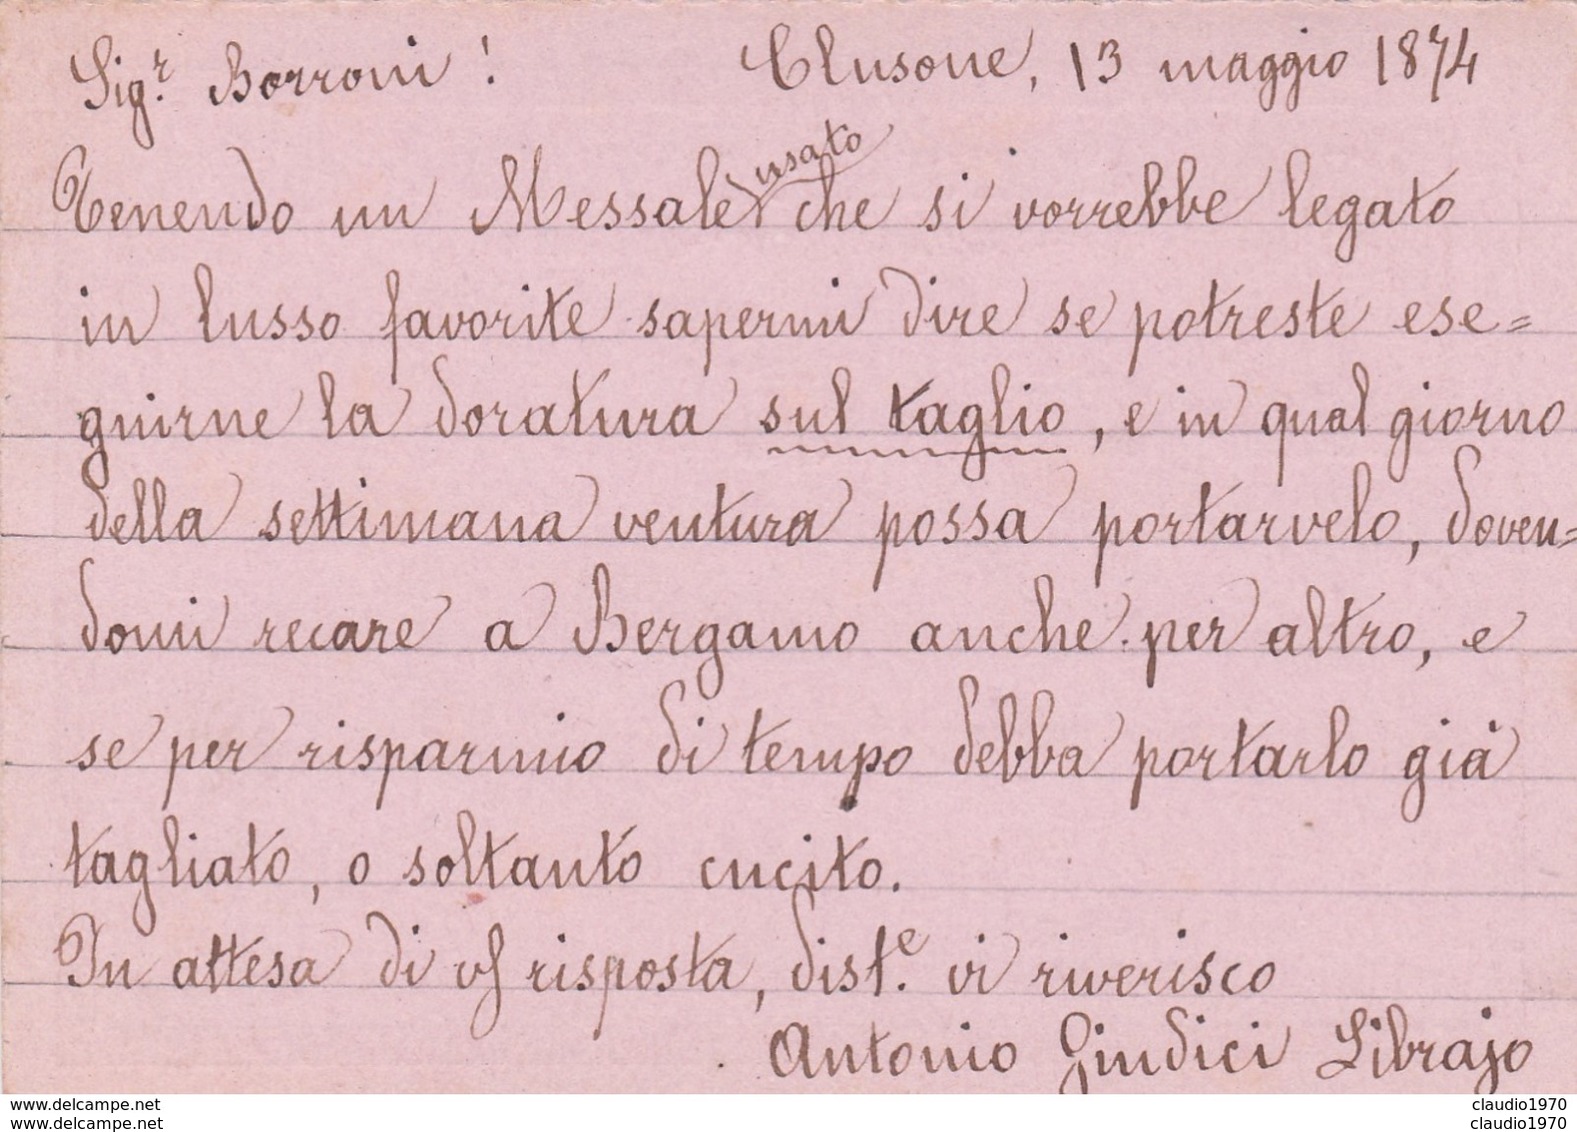 Sig.r Borroni! Clusone, 13 maggio 1874
usato
Tenendo un Messale che si vorrebbe legato
in lusso favorite sapermi dire se potreste ese=
guirne la doratura sul taglio, e in qual giorno
della settimana ventura possa portarvelo, doven=
domi recare a Bergamo anche per altro, e
se per risparmio di tempo debba portarlo già
tagliato, o soltanto cucito.
In attesa di risposta, dist.e vi riverisco
Antonio Giudici Librajo
www.delcampe.net claudio1970
www.delcampe.net claudio1970